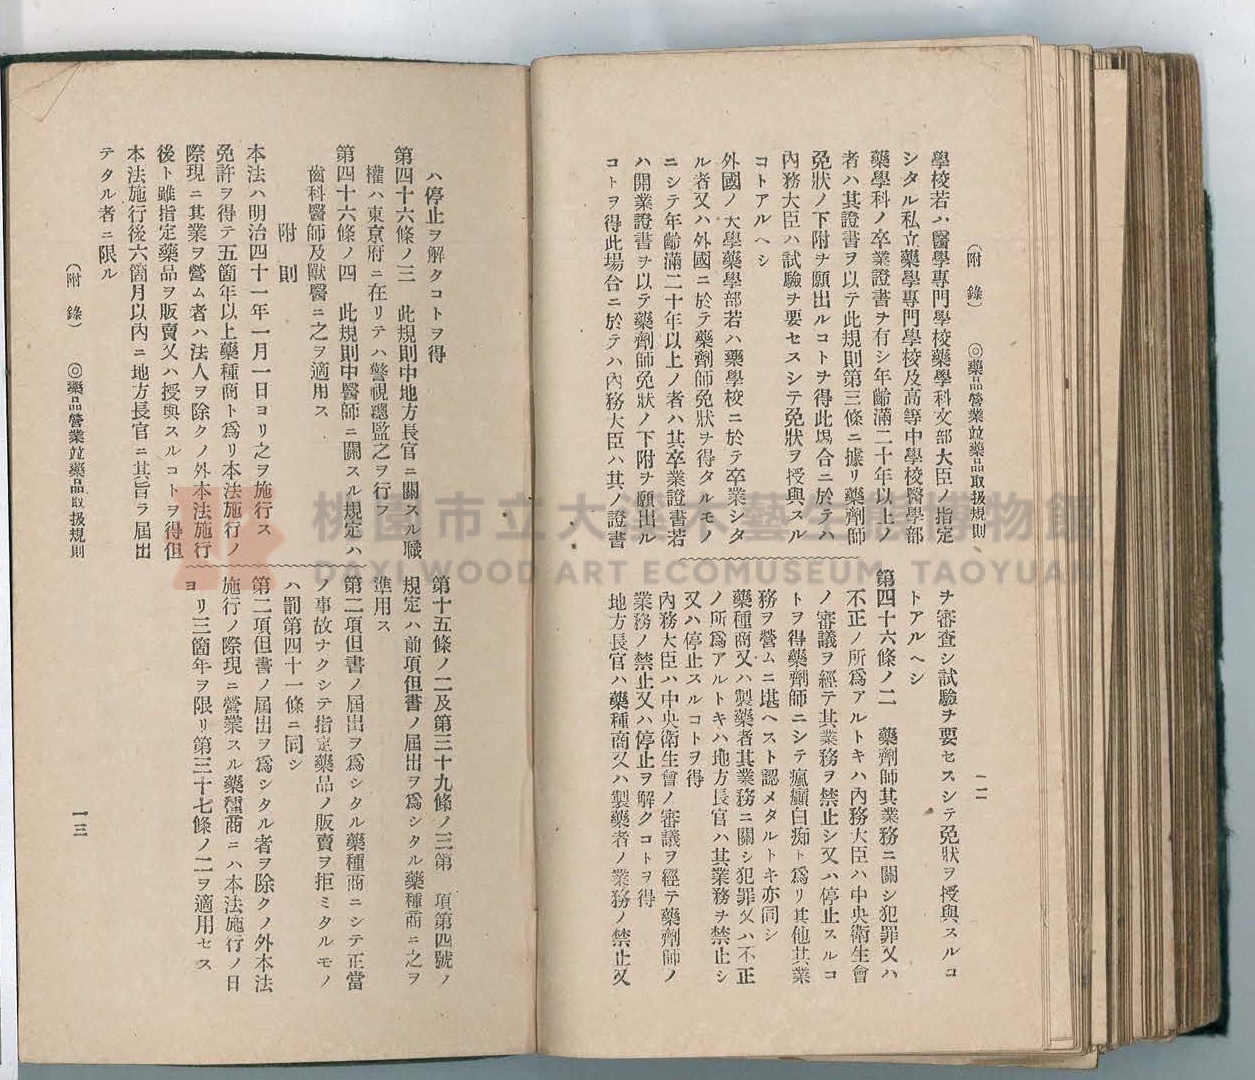 (附錄) ◎藥品營業竝藥品取扱規則 一二
學校若ハ醫學專門學校藥學科文部大臣ノ指定
シタル私立藥學專門學校及高等中學校醫學部
藥學科ノ卒業證書ヲ有シ年齡滿二十年以上ノ
者ハ其證書ヲ以テ此規則第三條ニ據リ藥劑師
免狀ノ下附ヲ願出ルコトヲ得此場合ニ於テハ
內務大臣ハ試驗ヲ要セスシテ免狀ヲ授與スル
コトアルヘシ
外國ノ大學藥學部若ハ藥學校ニ於テ卒業シタ
ル者又ハ外國ニ於テ藥劑師免狀ヲ得タルモノ
ニシテ年齡滿二十年以上ノ者ハ其卒業證書若
ハ開業證書ヲ以テ藥劑師免狀ノ下附ヲ願出ル
コトヲ得此場合ニ於テハ內務大臣ハ其ノ證書
ヲ審査シ試驗ヲ要セスシテ免狀ヲ授與スルコ
トアルヘシ
第四十六條ノ二 藥劑師其業務ニ關シ犯罪又ハ
不正ノ所爲アルトキハ內務大臣ハ中央衞生會
ノ審議ヲ經テ其業務ヲ禁止シ又ハ停止スルコ
トヲ得藥劑師ニシテ瘋癲白痴ト爲リ其他其業
務ヲ營ムニ堪ヘスト認メタルトキ亦同シ
藥種商又ハ製藥者其業務ニ關シ犯罪又ハ不正
ノ所爲アルトキハ地方長官ハ其業務ヲ禁止シ
又ハ停止スルコトヲ得
內務大臣ハ中央衞生會ノ審議ヲ經テ藥劑師ノ
業務ノ禁止又ハ停止ヲ解クコトヲ得
地方長官ハ藥種商又ハ製藥者ノ業務ノ禁止又
ハ停止ヲ解クコトヲ得
第四十六條ノ三 此規則中地方長官ニ關スル職
權ハ東京府ニ在リテハ警視總監之ヲ行フ
第四十六條ノ四 此規則中醫師ニ關スル規定ハ
齒科醫師及獸醫ニ之ヲ適用ス
附則
本法ハ明治四十一年一月一日ヨリ之ヲ施行ス
免許ヲ得テ五箇年以上藥種商ト爲リ本法施行ノ
際現ニ其業ヲ營ム者ハ法人ヲ除クノ外本法施行
後ト雖指定藥品ヲ販賣又ハ授與スルコトヲ得但
本法施行後六箇月以內ニ地方長官ニ其旨ヲ屆出
テタル者ニ限ル
第十五條ノ二及第三十九條ノ三第 項第四號ノ
規定ハ前項但書ノ屆出ヲ爲シタル藥種商ニ之ヲ
準用ス
第二項但書ノ屆出ヲ爲シタル藥種商ニシテ正當
ノ事故ナクシテ指定藥品ノ販賣ヲ拒ミタルモノ
ハ罰第四十一條ニ同シ
第二項但書ノ屆出ヲ爲シタル者ヲ除クノ外本法
施行ノ際現ニ營業スル藥種商ニハ本法施行ノ日
ヨリ三箇年ヲ限リ第三十七條ノ二ヲ適用セス
(附錄) ◎藥品營業竝藥品取扱規則 一三
桃園市立大溪木藝生態博物館
DAXI WOOD ART ECOMUSEUM, TAOYUAN